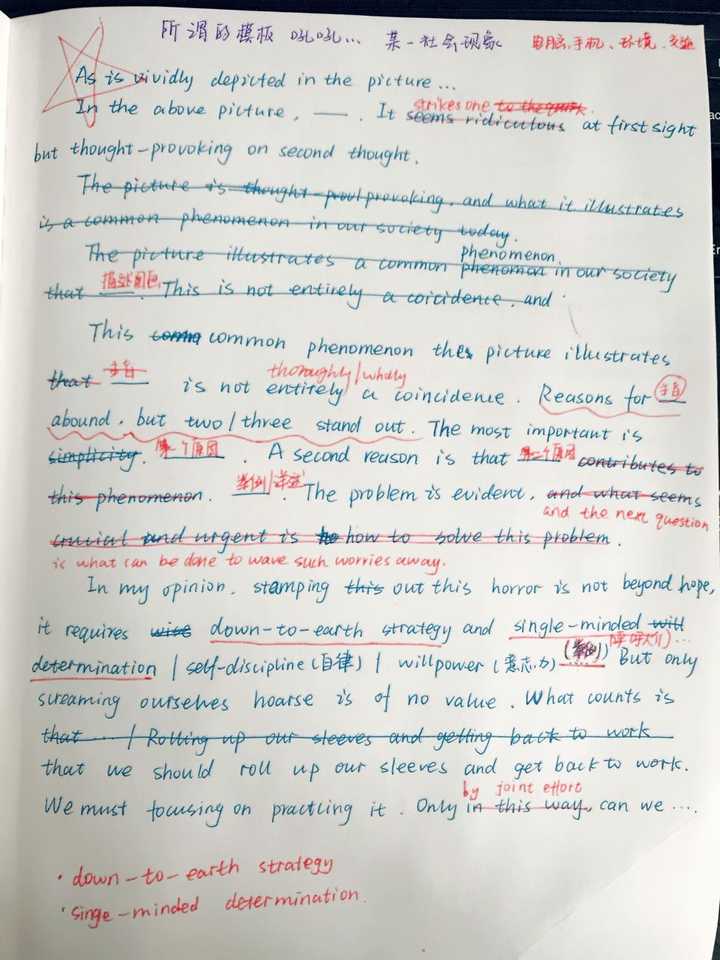 所谓的模板 叽叽... 某一社会现象 电脑、手机、环境、交通
As is vividly depicted in the picture ...
In the above picture, ——. It seems ridiculous strikes one to the quick at first sight
but thought-provoking on second thought.
The picture is thought-provoking, and what it illustrates
is a common phenomenon in our society today.
The picture illustrates a common phenoman phenomenon in our society
that 描述图画. This is not entirely a coicidence, and
This common phenomenon the picture illustrates
that 主旨 is not entirely thoroughly/wholly a coincidence. Reasons for 主旨
abound, but two/three stand out. The most important is
simplicity. 第一个原因. A second reason is that 第二个原因 contributes to
this phenomenon. 举例/详述. The problem is evident, and what seems
and the next question
crucial and urgent is how to solve this problem.
is what can be done to wave such worries away.
In my opinion, stamping this out this horror is not beyond hope,
it requires wise down-to-earth strategy and single-minded will
determination / self-discipline (自律) / willpower (意志力) (举例) But only
screaming ourselves hoarse is of no value. What counts is
that ... / Rolling up our sleeves and getting back to work
that we should roll up our sleeves and get back to work.
by joint effort
We must focusing on practcing it. Only in this way, can we ....
· down-to-earth strategy
· singe-minded determination.